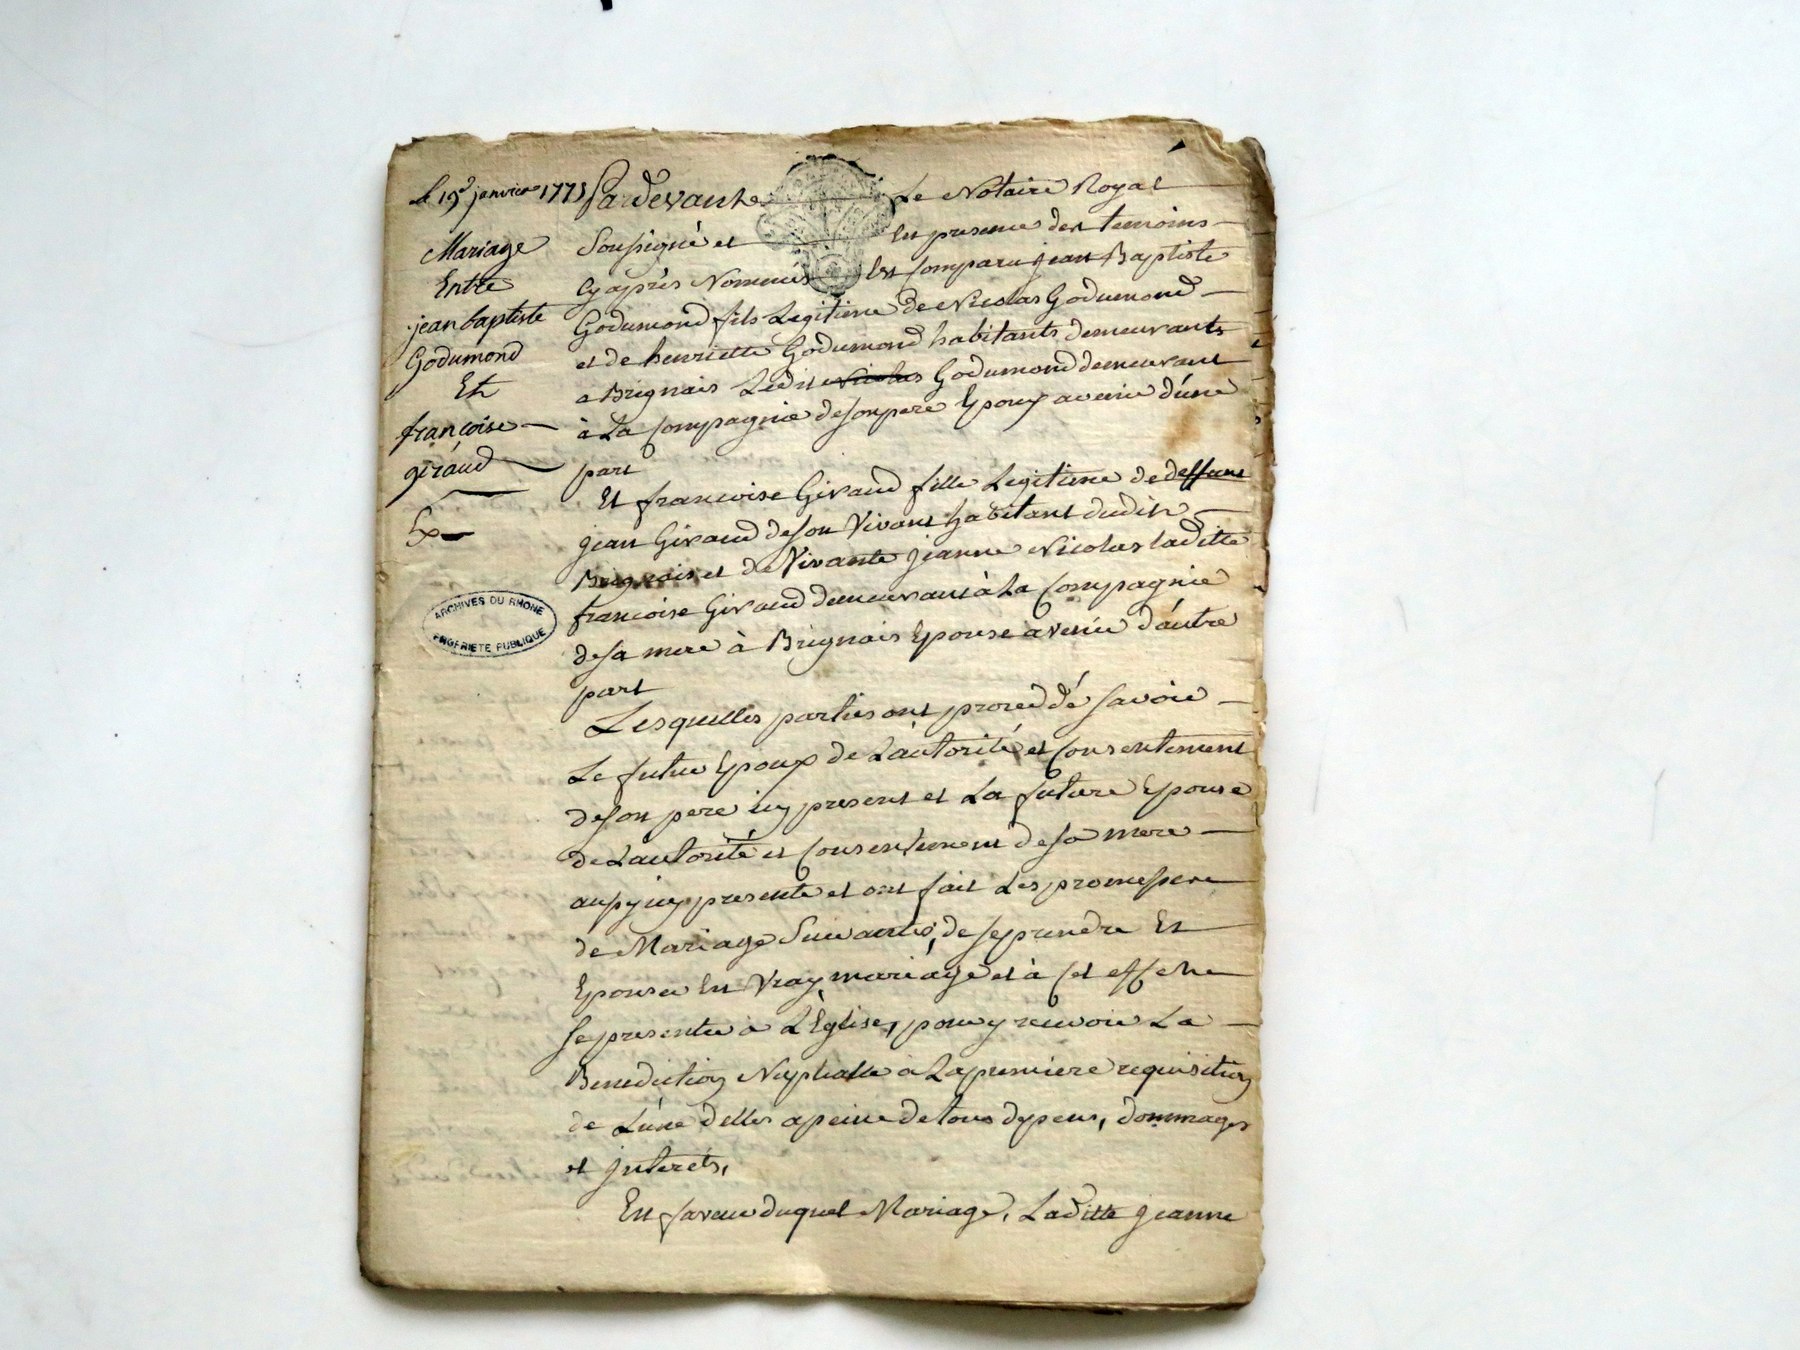 le 19e janvier 1773
Mariage
Entre
jean baptiste
Godumond
Et
françoise
giráud
Ex
ARCHIVES DU RHONE
PROPRIETE PUBLIQUE
Pardevant Le Notaire Royal
Soussigné et En presence des temoins
Cy après Nommés Est Comparu jean Baptiste
Godumond fils Legitime de Nicolas Godumond
et de henriette Godumond habitants demeurants
a Brignais Ledit Nicolas Godumond demeurant
à La Compagnie de son pere Epoux avenir d'une
part
Et francoise Giraud fille Legitime de deffunt
jean Giraud de son Vivant habitant dudit
Brignais et de Vivante jeanne Nicolas laditte
francoise Giraud demeurant à La Compagnie
de sa mere à Brignais Epouse avenir d'áutre
part
Lesquelles parties ont proceddé savoir
Le futur Epoux de L'autorité et Consentement
de son pere icy present et La future Epouse
de L'autorité et Consentement de sa mere
aussy icy presente et ont fait Les promesses
de Mariage Suivantes, de se prendre Et
Epouser En Vray mariage et à Cet effet
se presenter à L'Eglise, pour y recevoir La
Benediction Nuptialle a La premiere requisition
de L'une d'elles a peine de tous depens, dommages
et jnterets,
En faveur duquel Mariage, Laditte jeanne